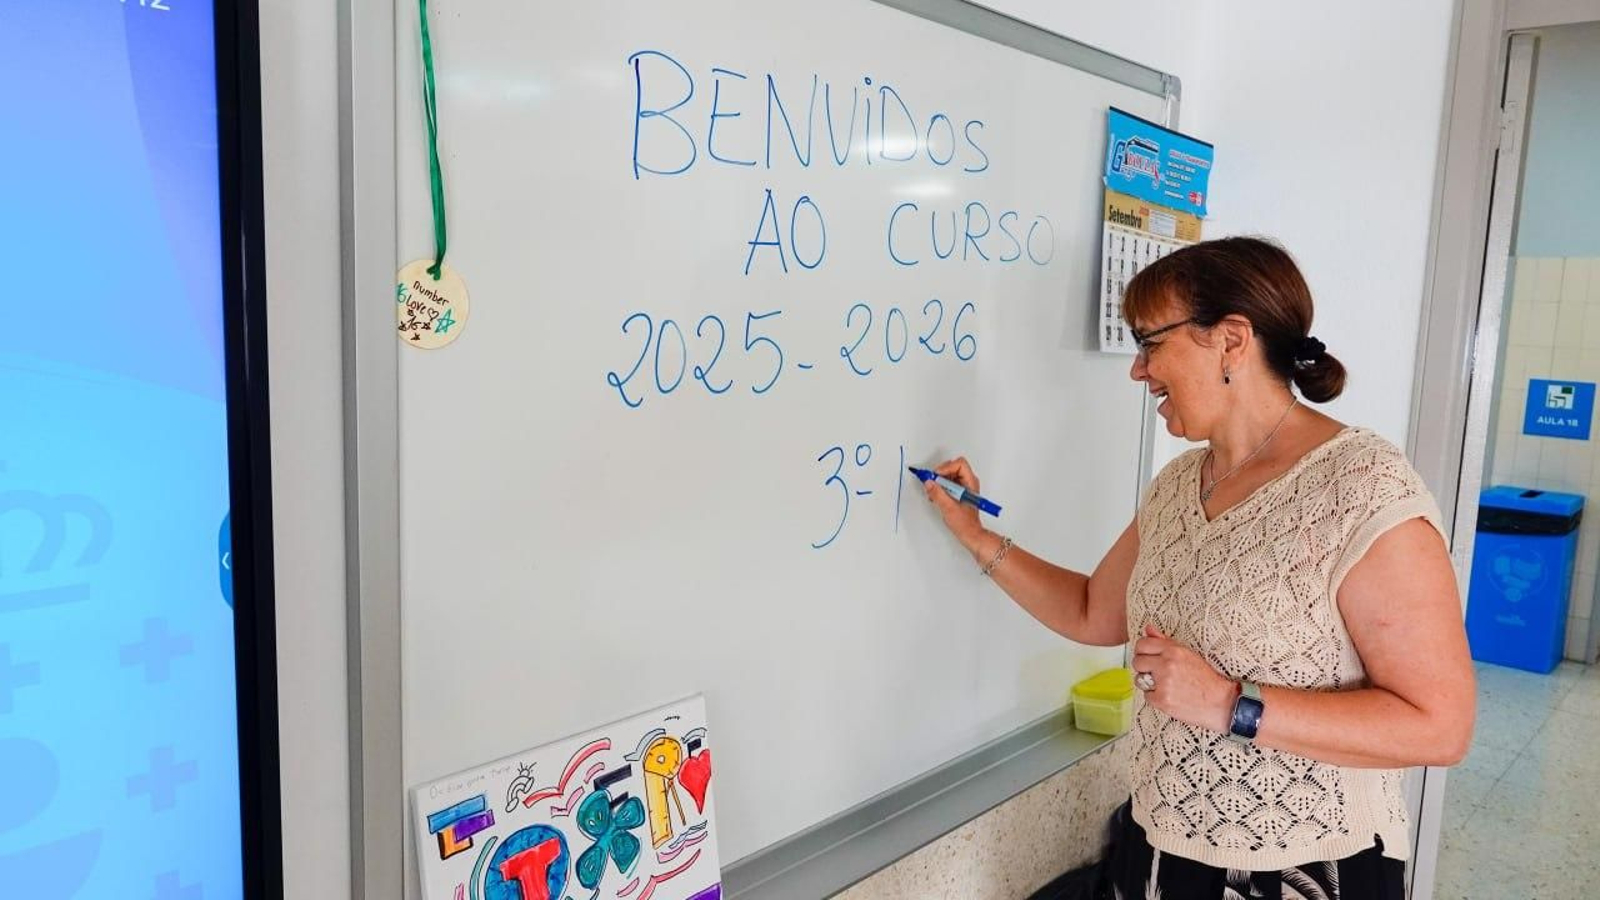 BENVIDOS
AO CURSO
2025-2026
3º
number
Love
Setembro
AULA 18